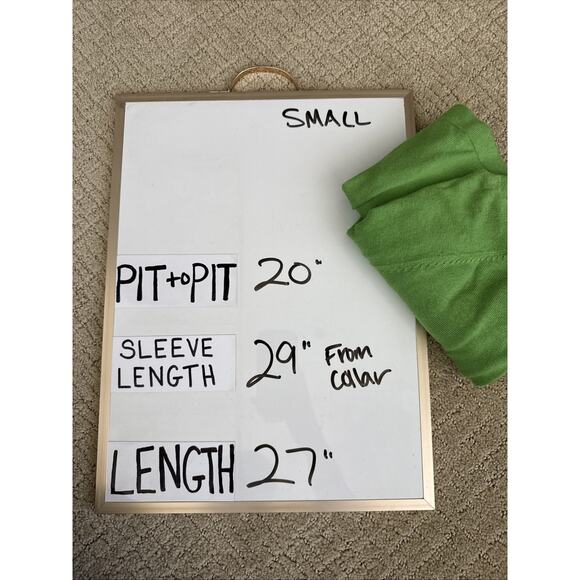 SMALL
PIT to PIT 20"
SLEEVE LENGTH 29" From Collar
LENGTH 27"